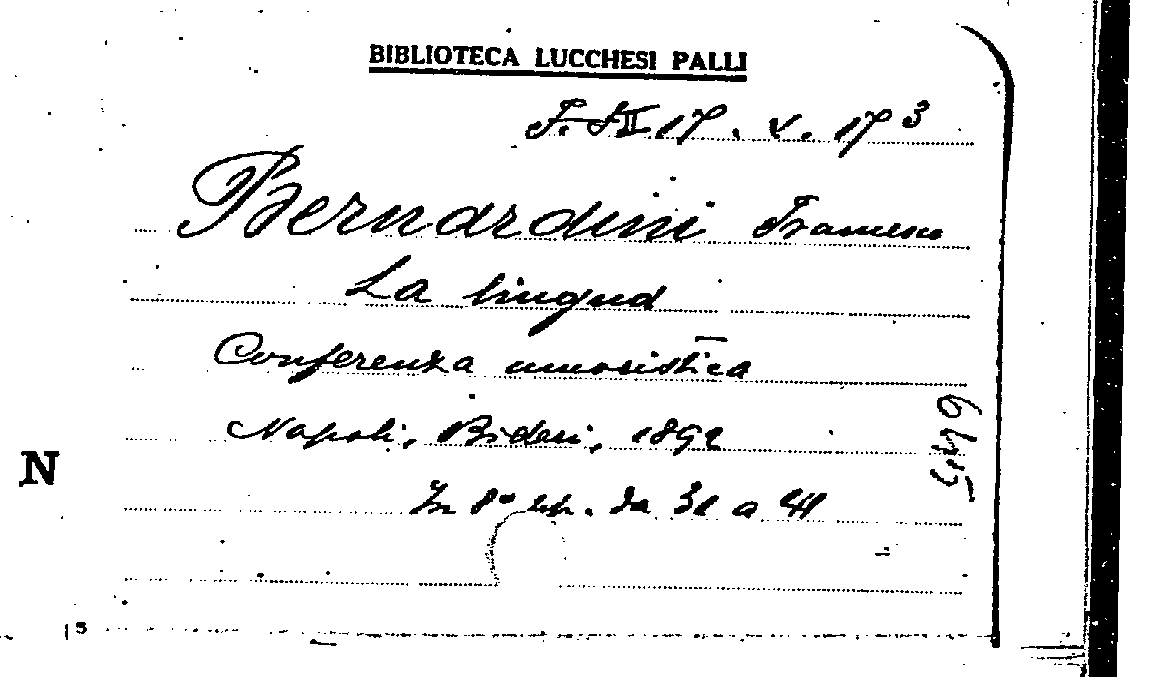 BIBLIOTECA LUCCHESI PALLI
17. V. 17 3
Bernardini Francesco
La lingua
Conferenza umoristica
Napoli, Bideri, 1892
N
In 8° da 31 a 41
15